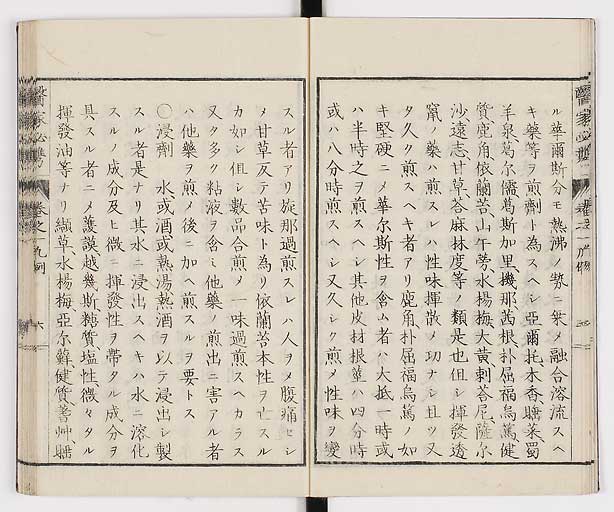 ル華爾斯分モ熱沸ノ勢ニ乗メ融合溶流スヘ
キ藥等ヲ煎劑ト為スヘシ亞爾托木香菖菜蜀
羊泉葛尔儒葛斯加里機那茜根朴屈福烏篤健
質鹿角依蘭苔山牛蒡水楊梅大黄刺荅尼薩尔
沙遠志甘草荅麻林度等ノ類是也但シ揮發透
竄ノ藥ハ煎スレハ性味揮散メ功ナシ且ツ又
タ久ク煎スヘキ者アリ鹿角朴屈福烏篤ノ如
キ堅硬ニメ華尔斯性ヲ含ム者ハ大抵一時或
ハ半時之ヲ煎スヘシ其他皮材根葉ハ四分時
或ハ八分時煎スヘシ又久シク煎メ性味ヲ變
スル者アリ旋那過煎スレハ人ヲメ腹痛セシ
メ甘草反テ苦味ト為リ依蘭苔本性ヲ亡スル
カ如シ但シ數品合煎ノ一味過煎スヘカラス
又タ多ク粘液ヲ含ミ他藥ノ煎出ニ害アル者
ハ他藥ヲ煎メ後ニ加ヘ煎スルヲ要トス
〇浸劑 水或酒或熱湯熱酒ヲ以テ浸出シ製
スル者是ナリ其水ニ浸出スヘキハ水ニ溶化
スルノ成分及ヒ微ニ揮發性ヲ帶タル成分ヲ
具スル者ニメ護謨越幾斯糖質塩性微々タル
揮發油等ナリ纈草水楊梅亞尔蘇健質菖艸